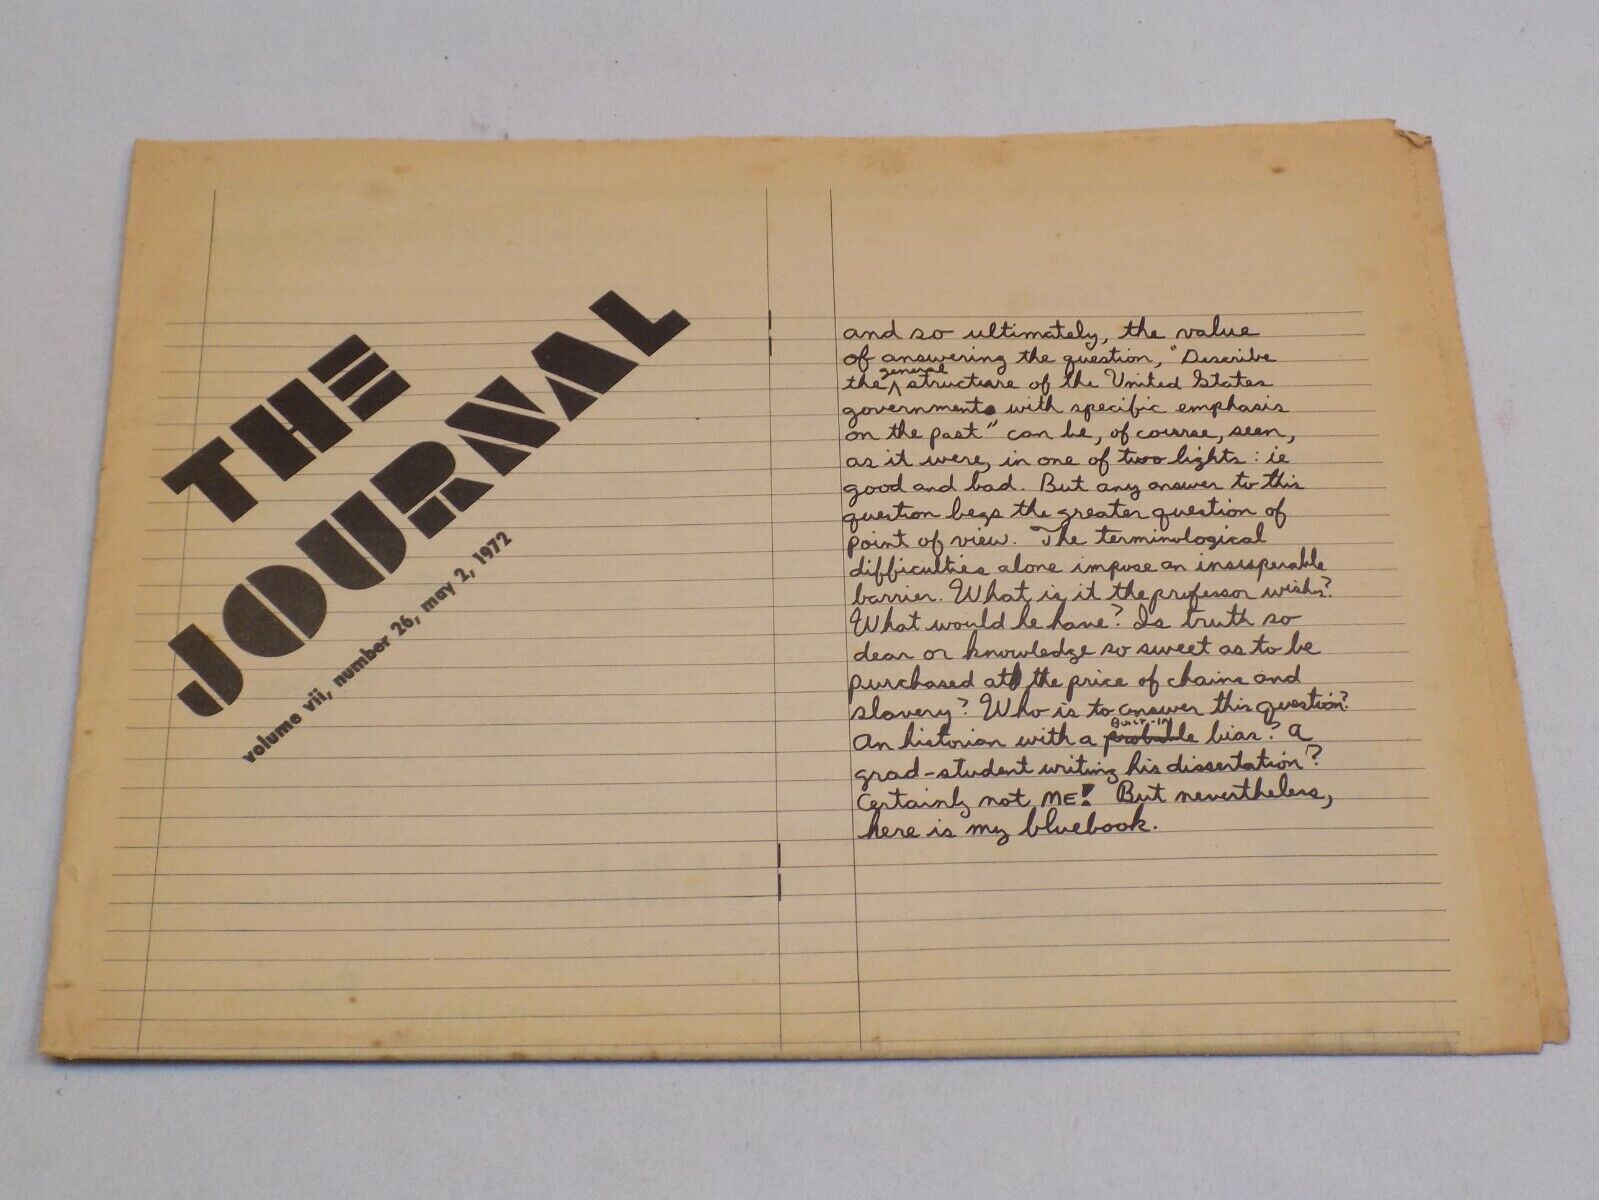 THE
JOURNAL
volume vii, number 26, may 2, 1972
and so ultimately, the value
of answering the question, "Describe
the general structure of the United States
government with specific emphasis
on the past" can be, of course, seen,
as it were, in one of two lights: ie
good and bad. But any answer to this
question begs the greater question of
point of view. The terminological
difficulties alone impose an insuperable
barrier. What is it the professor wishes?
What would he have? Is truth so
dear or knowledge so sweet as to be
purchased at the price of chains and
slavery? Who is to answer this question?
Built-in
An historian with a probable bias? A
grad-student writing his dissertation?
Certainly not ME! But nevertheless,
here is my bluebook.